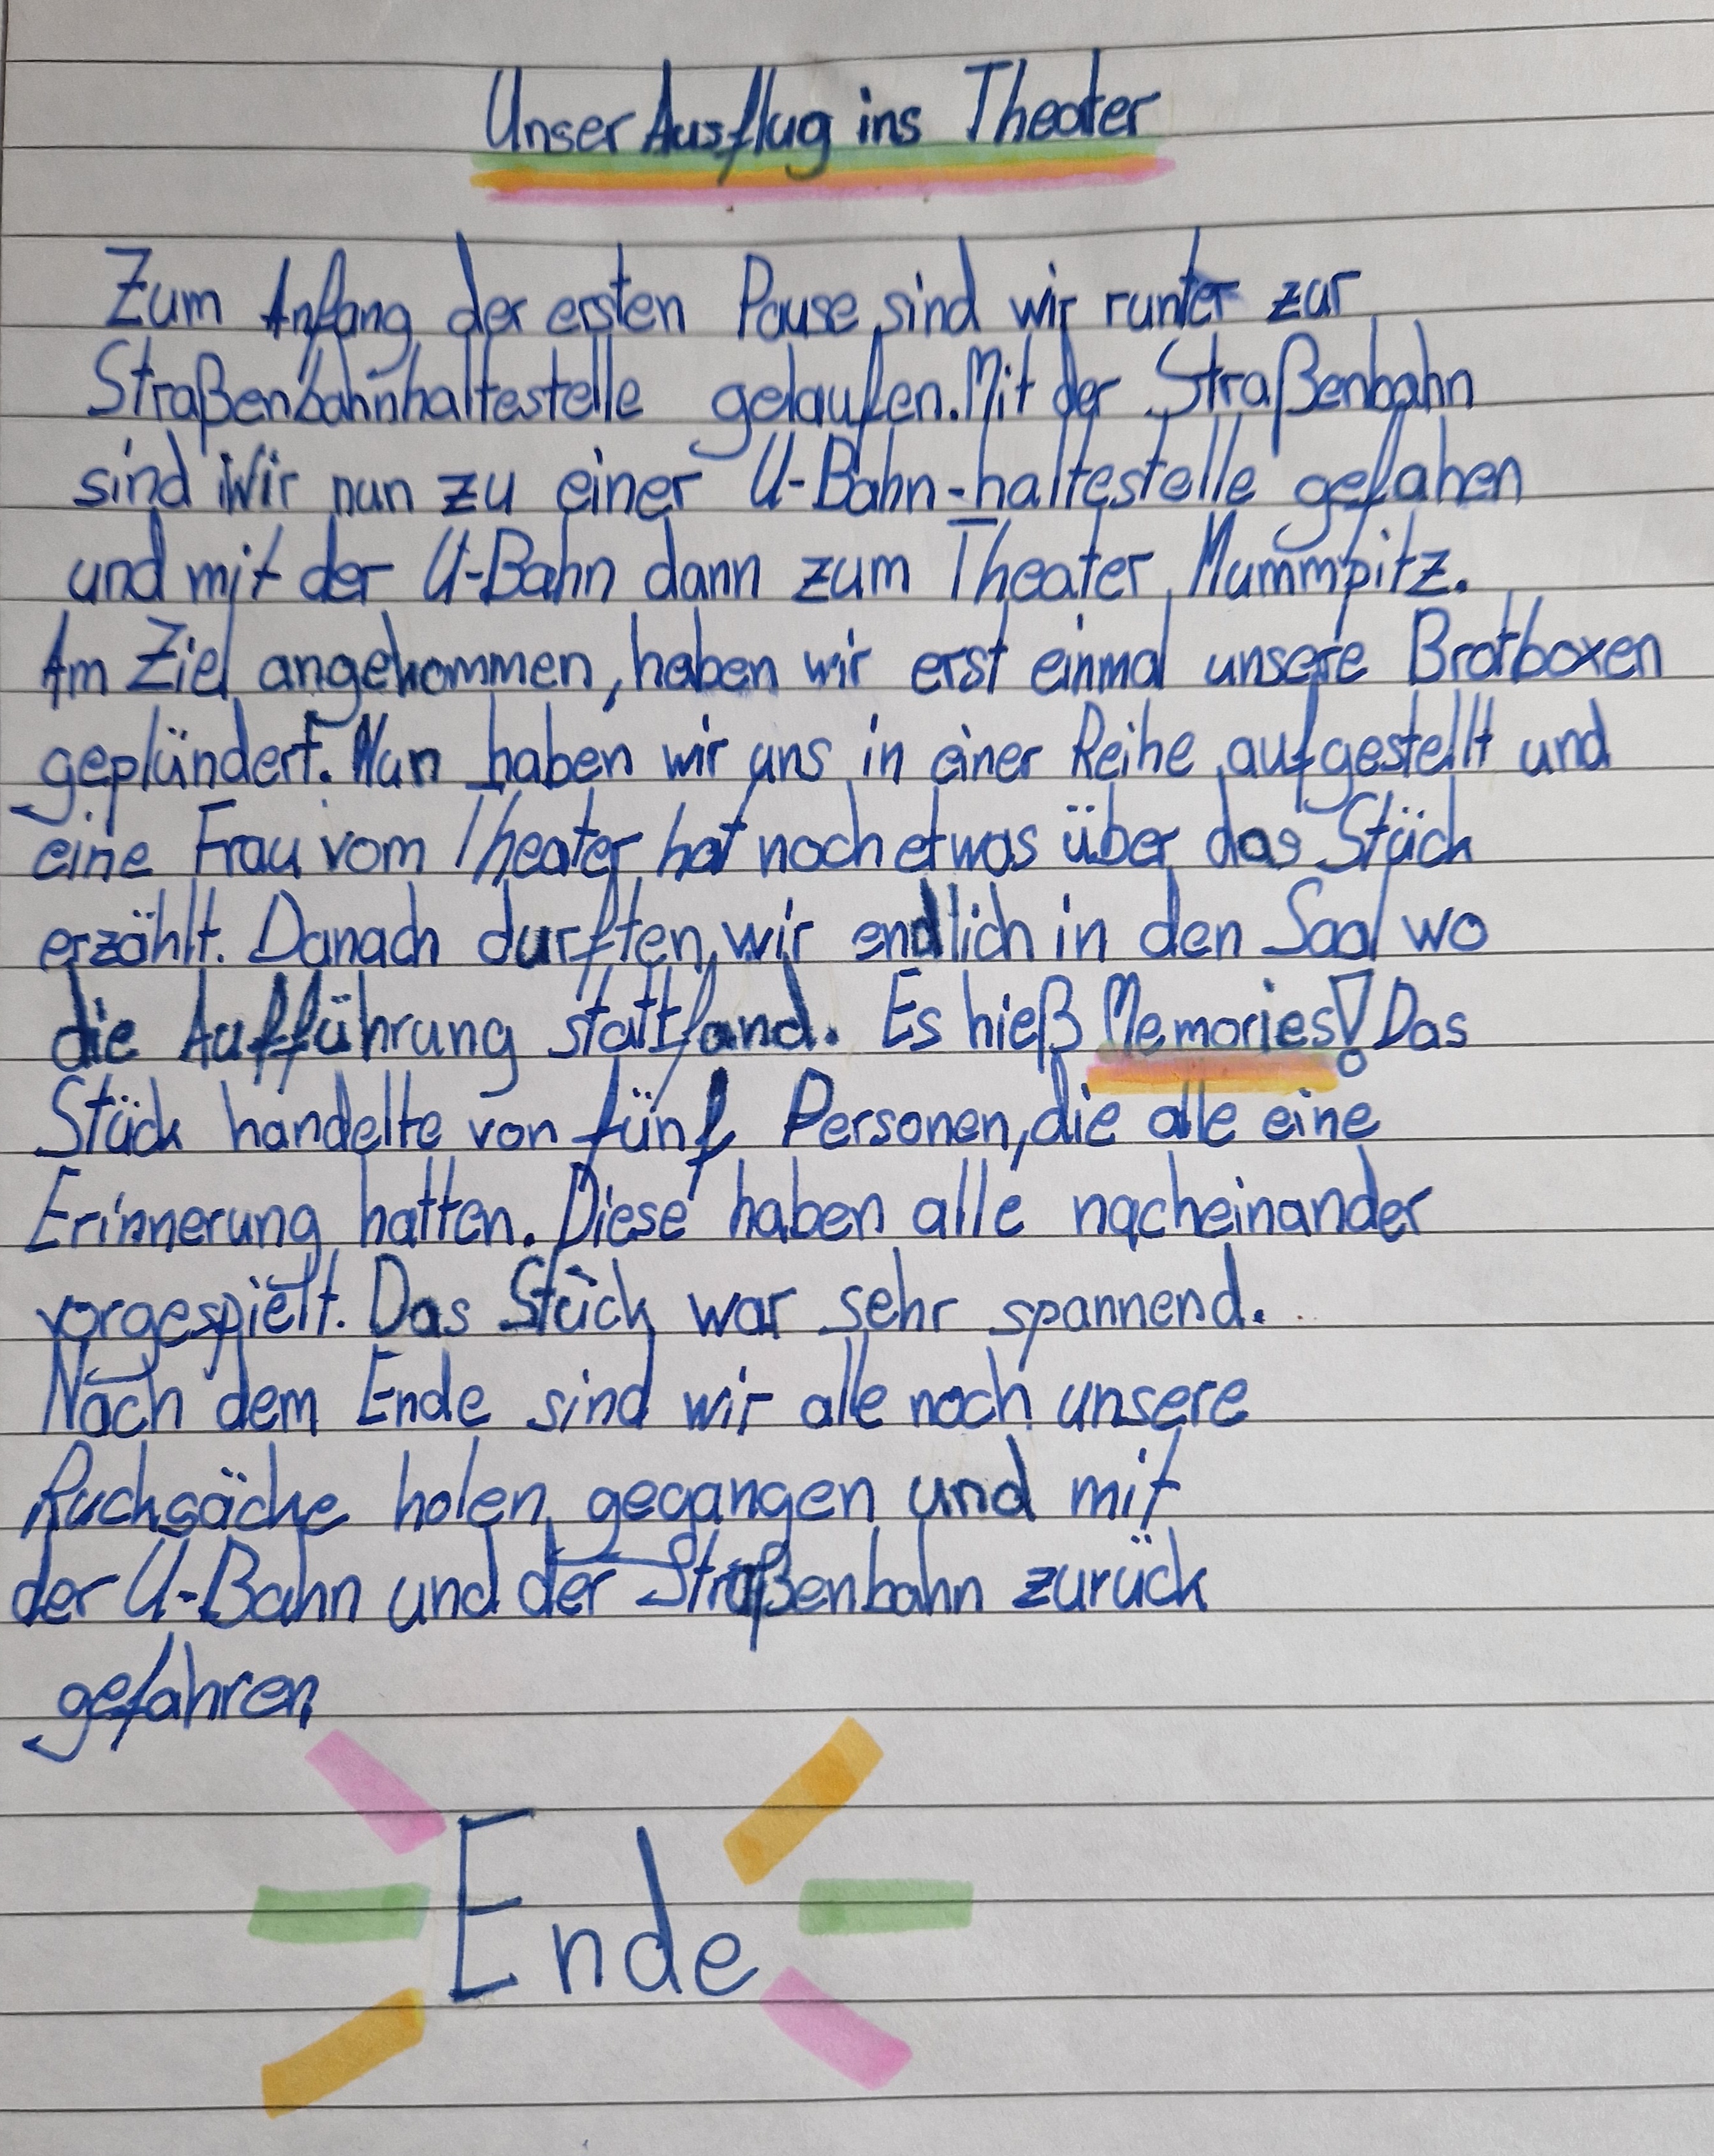 Unser Ausflug ins Theater
Zum Anfang der ersten Pause sind wir runter zur
Straßenbahnhaltestelle gelaufen. Mit der Straßenbahn
sind wir nun zu einer U-Bahn-haltestelle gefahen
und mit der U-Bahn dann zum Theater Mummpitz.
Am Ziel angekommen, haben wir erst einmal unsere Brotboxen
geplündert. Nun haben wir uns in einer Reihe aufgestellt und
eine Frau vom Theater hat noch etwas über das Stück
erzählt. Danach durften wir endlich in den Saal wo
die Aufführung stattfand. Es hieß Memories! Das
Stück handelte von fünf Personen, die alle eine
Erinnerung hatten. Diese haben alle nacheinander
vorgespielt. Das Stück war sehr spannend.
Nach dem Ende sind wir alle noch unsere
Rucksäcke holen gegangen und mit
der U-Bahn und der Straßenbahn zurück
gefahren
Ende